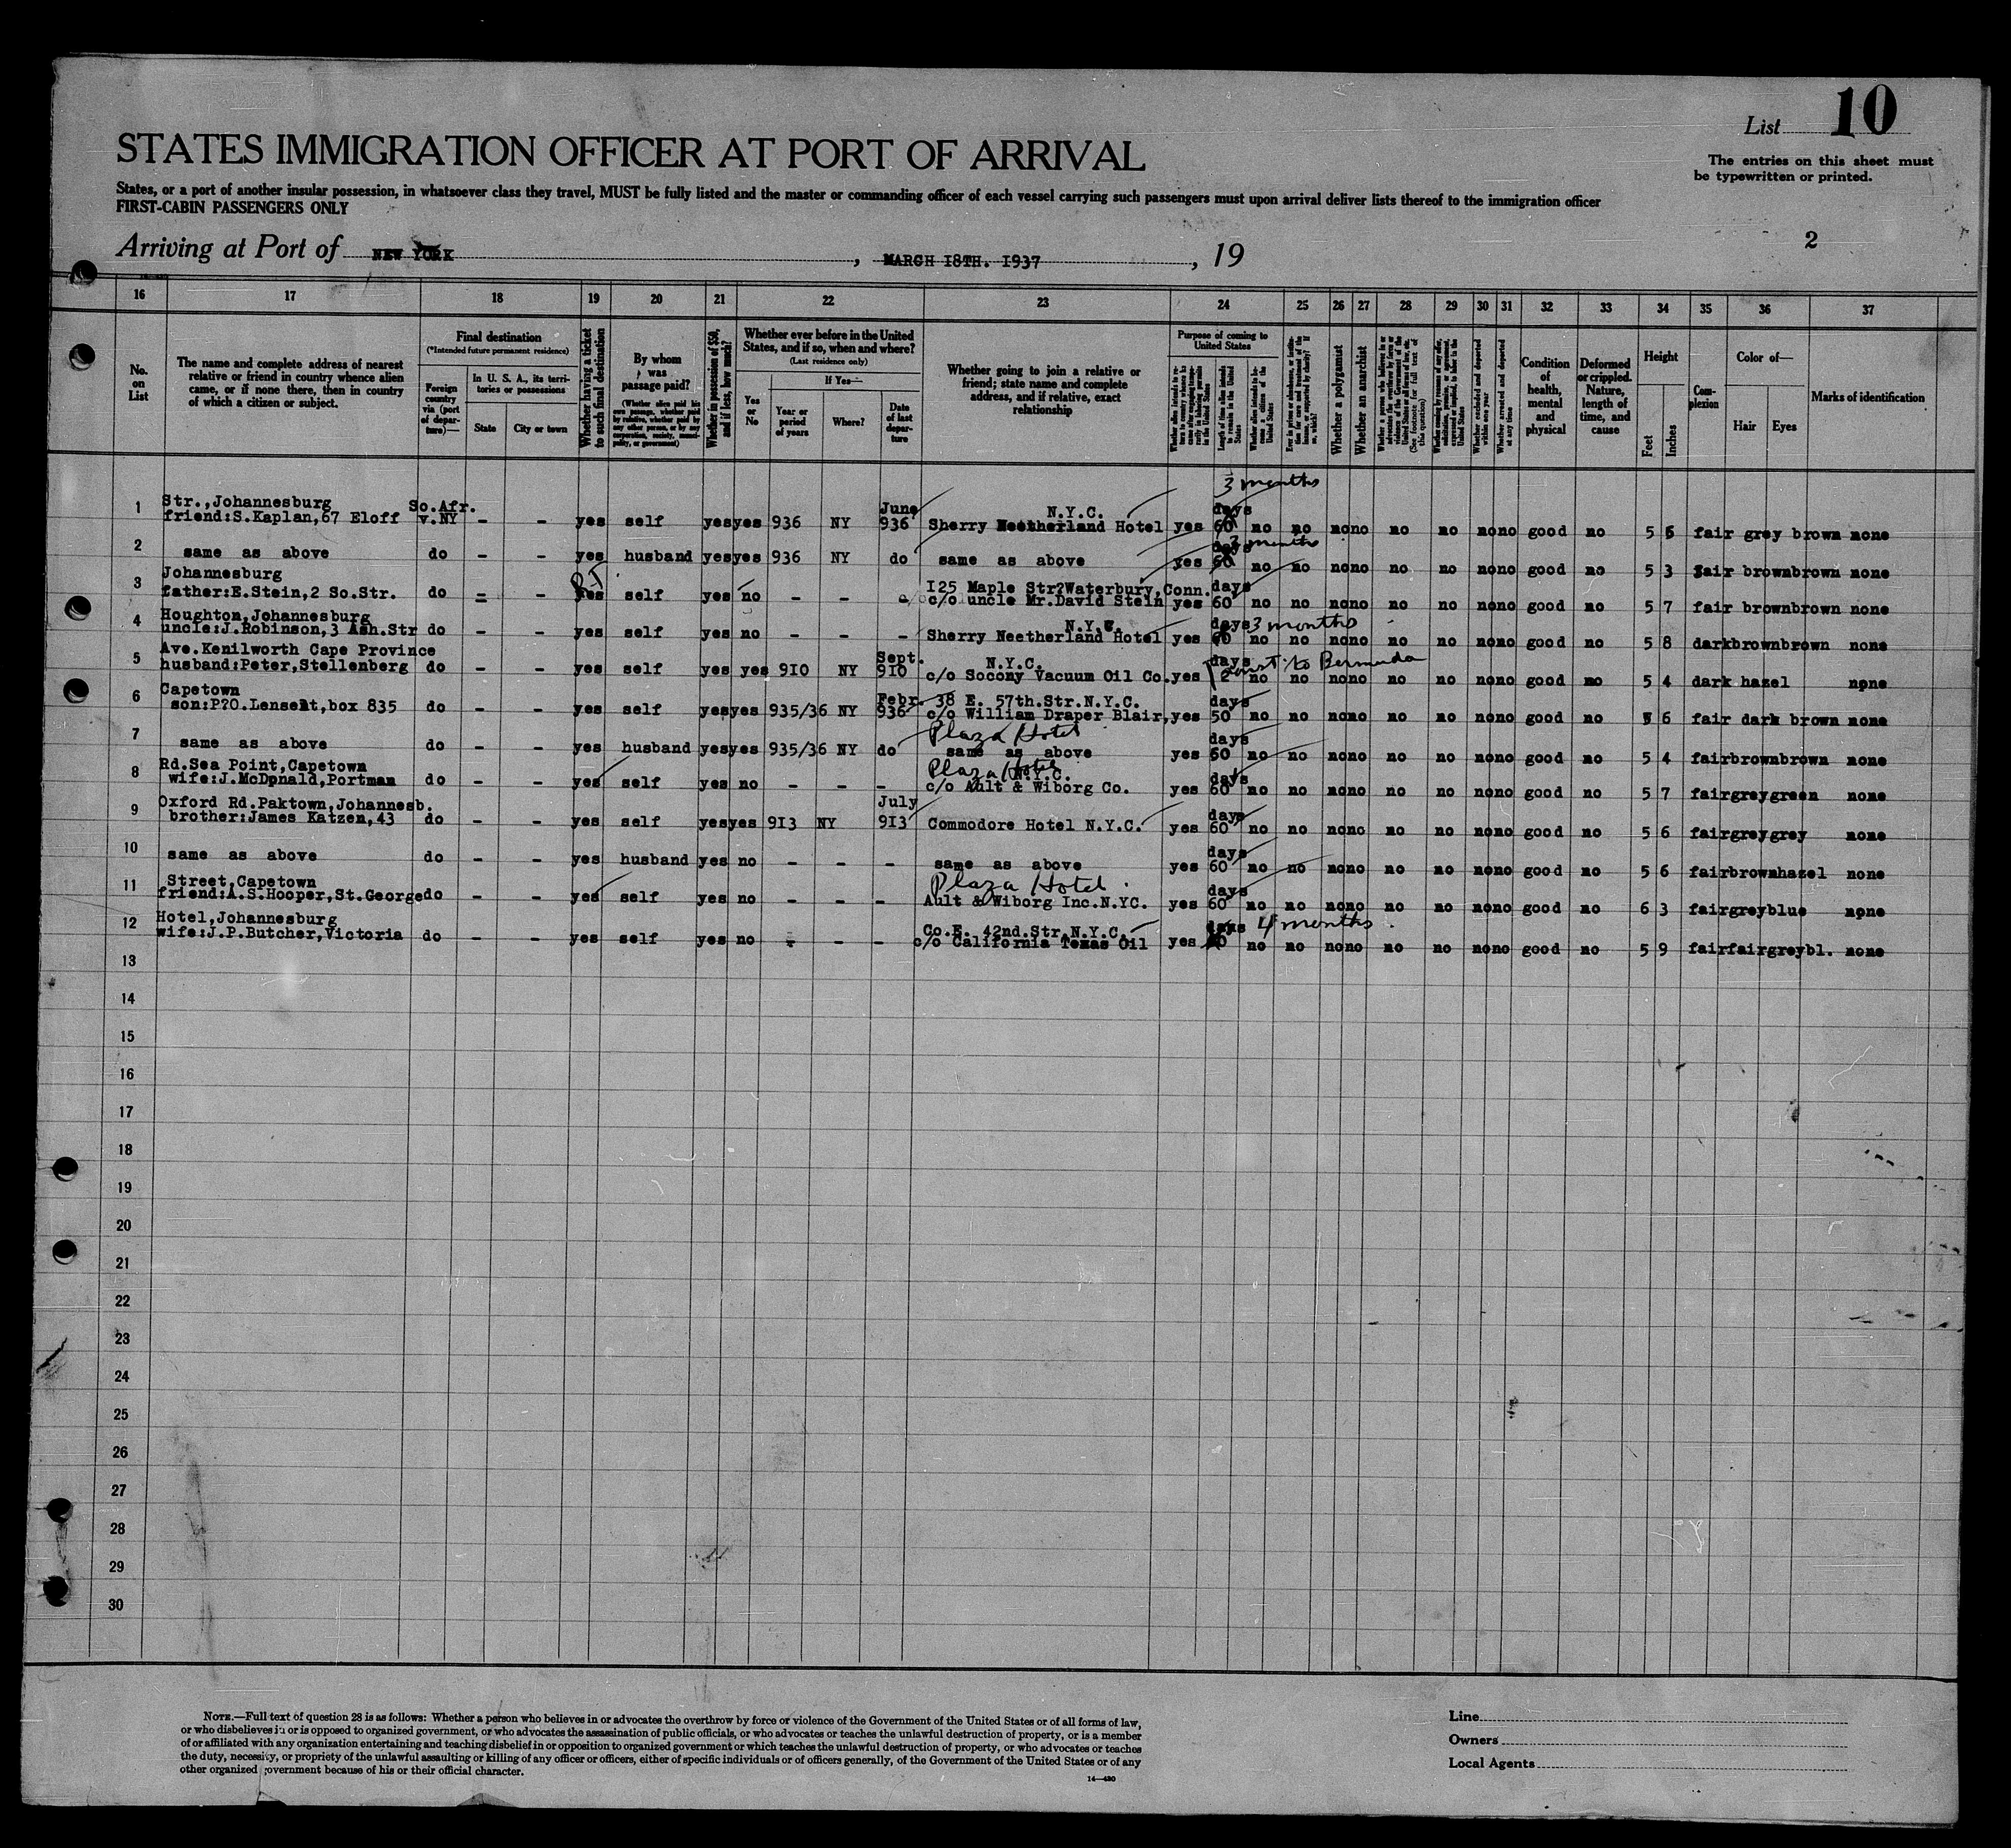 List 10
The entries on this sheet must
be typewritten or printed.
STATES IMMIGRATION OFFICER AT PORT OF ARRIVAL
States, or a port of another insular possession, in whatsoever class they travel, MUST be fully listed and the master or commanding officer of each vessel carrying such passengers must upon arrival deliver lists thereof to the immigration officer
FIRST-CABIN PASSENGERS ONLY
2
Arriving at Port of NEW YORK , MARCH I8TH. I937 , 19
16 17 18 19 20 21 22 23 24 25 26 27 28 29 30 31 32 33 34 35 36 37
No. on List
The name and complete address of nearest
relative or friend in country whence alien
came, or if none there, then in country
of which a citizen or subject.
Final destination
(*Intended future permanent residence)
Foreign country via (port of departure)—
In U. S. A., its territories or possessions
State
City or town
Whether having a ticket to such final destination
By whom was passage paid?
(Whether alien paid his own passage, whether paid by relative, whether paid by any other person, or by any corporation, society, municipality, or government)
Whether in possession of $50, and if less, how much?
Whether ever before in the United States, and if so, when and where?
(Last residence only)
Yes or No
If Yes—
Year or period of years
Where?
Date of last departure
Whether going to join a relative or
friend; state name and complete
address, and if relative, exact
relationship
Purpose of coming to United States
Length of time alien intends to remain in the United States
Whether alien intends to become a citizen of the United States
Whether a polygamist
Whether an anarchist
(See footnote for full text of this question)
Whether excluded and deported within one year
Whether arrested and deported at any time
Condition of health, mental and physical
Deformed or crippled. Nature, length of time, and cause
Height
Feet
Inches
Complexion
Color of—
Hair
Eyes
Marks of identification
3 months
1 Str.,Johannesburg So.Afr. June N.Y.C. days
friend:S.Kaplan,67 Eloff v.NY - - yes self yes yes 936 NY 936 Sherry Neetherland Hotel yes 60 no no no no no no no no good no 5 6 fair grey brown none
3 months
2 same as above do - - yes husband yes yes 936 NY do same as above yes 60 no no no no no no no no good no 5 3 fair brown brown none
3 Johannesburg I25 Maple Str?Waterbury,Conn. days
father:E.Stein,2 So.Str. do - - yes self yes no - - c/o uncle Mr.David Stein yes 60 no no no no no no no no good no 5 7 fair brown brown none
4 Houghton,Johannesburg N.Y.C. days 3 months
uncle:J.Robinson,3 Ash.Str do - - yes self yes no - - - Sherry Neetherland Hotel yes 60 no no no no no no no no good no 5 8 dark brown brown none
5 Ave.Kenilworth Cape Province Sept. N.Y.C. days to Bermuda
husband:Peter,Stellenberg do - - yes self yes yes 9I0 NY 9I0 c/o Socony Vacuum Oil Co. yes 2 no no no no no no no no good no 5 4 dark hazel none
6 Capetown Febr. 38 E. 57th.Str.N.Y.C. days
son:P?O.Lenselt,box 835 do - - yes self yes yes 935/36 NY 936 c/o William Draper Blair, yes 50 no no no no no no no no good no 5 6 fair dark brown none
Plaza Hotel
7 days
same as above do - - yes husband yes yes 935/36 NY do same as above yes 60 no no no no no no no no good no 5 4 fair brown brown none
Plaza Hotel
8 Rd.Sea Point,Capetown N.Y.C. days
wife:J.McDonald,Portman do - - yes self yes no - - - c/o Ault & Wiborg Co. yes 60 no no no no no no no no good no 5 7 fair grey green none
9 Oxford Rd.Paktown,Johannesb. July days
brother:James Katzen,43 do - - yes self yes yes 9I3 NY 9I3 Commodore Hotel N.Y.C. yes 60 no no no no no no no no good no 5 6 fair grey grey none
10 days
same as above do - - yes husband yes no - - - same as above yes 60 no no no no no no no no good no 5 6 fair brown hazel none
Plaza Hotel
11 Street,Capetown days
friend:A.S.Hooper,St.George do - - yes self yes no - - - Ault & Wiborg Inc.N.YC. yes 60 no no no no no no no no good no 6 3 fair grey blue none
12 Hotel,Johannesburg Co.E. 42nd.Str.N.Y.C. days 4 months
wife:J.P.Butcher,Victoria do - - yes self yes no - - - c/o California Texas Oil yes no no no no no no no no good no 5 9 fair fair greybl. none
13
14
15
16
17
18
19
20
21
22
23
24
25
26
27
28
29
30
NOTE.—Full text of question 28 is as follows: Whether a person who believes in or advocates the overthrow by force or violence of the Government of the United States or of all forms of law,
or who disbelieves in or is opposed to organized government, or who advocates the assassination of public officials, or who advocates or teaches the unlawful destruction of property, or is a member
of or affiliated with any organization entertaining and teaching disbelief in or opposition to organized government or which teaches the unlawful destruction of property, or who advocates or teaches
the duty, necessity, or propriety of the unlawful assaulting or killing of any officer or officers, either of specific individuals or of officers generally, of the Government of the United States or of any
other organized government because of his or their official character.
14—430
Line
Owners
Local Agents